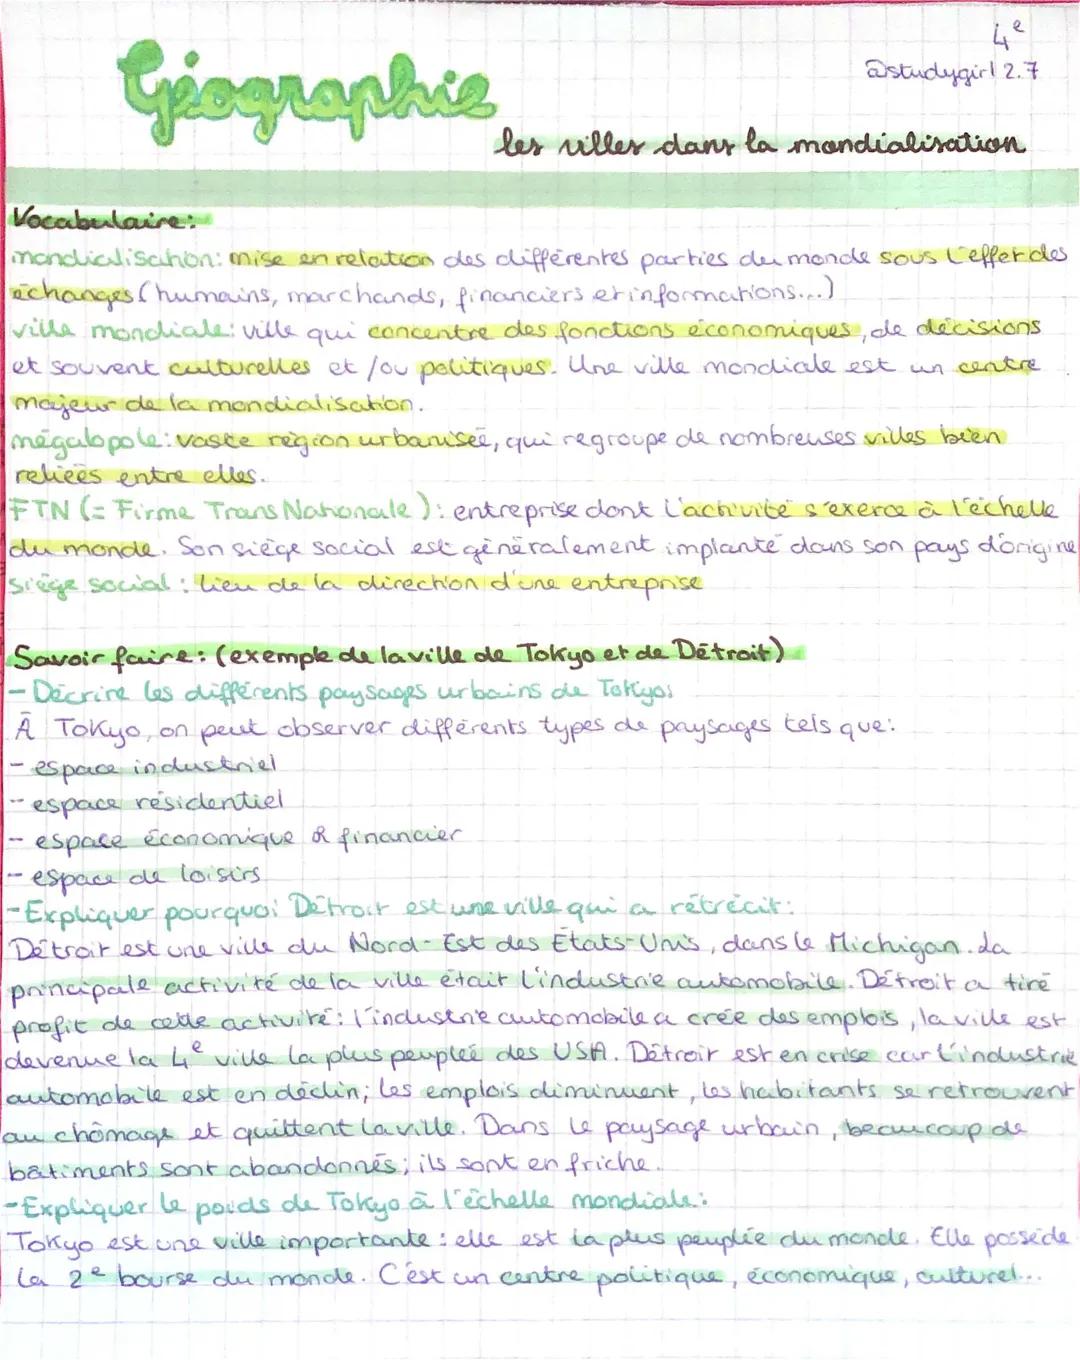 4e
@studygirl 2.7
Géographie
les villes dans la mondialisation
Vocabulaire:
mondialisation: mise en relation des différentes parties du monde sous l'effet des
échanges (humains, marchands, financiers et informations...)
ville mondiale: ville qui concentre des fonctions économiques, de décisions
et souvent culturelles et /ou politiques. Une ville mondiale est un centre
majeur de la mondialisation.
mégalopole: vaste région urbanisée, qui regroupe de nombreuses villes bien
reliées entre elles.
FTN (= Firme TransNationale): entreprise dont l'activité s'exerce à l'échelle
du monde. Son siège social est généralement implanté dans son pays d'origine
siège social: lieu de la direction d'une entreprise
Savoir faire: (exemple de la ville de Tokyo et de Détroit)
- Décrire les différents paysages urbains de Tokyo:
À Tokyo, on peut observer différents types de paysages tels que:
- espace industriel
- espace résidentiel
- espace économique & financier
- espace de loisirs
- Expliquer pourquoi Détroit est une ville qui a rétrécit:
Détroit est une ville du Nord-Est des États-Unis, dans le Michigan. La
principale activité de la ville était l'industrie automobile. Détroit a tiré
profit de cette activité: l'industrie automobile a crée des emplois, la ville est
devenue la 4e ville la plus peuplée des USA. Détroit est en crise car l'industrie
automobile est en déclin; les emplois diminuent, les habitants se retrouvent
au chômage et quittent la ville. Dans le paysage urbain, beaucoup de
bâtiments sont abandonnés; ils sont en friche.
- Expliquer le poids de Tokyo à l'échelle mondiale:
Tokyo est une ville importante: elle est la plus peuplée du monde. Elle possède
la 2e bourse du monde. C'est un centre politique, économique, culturel...